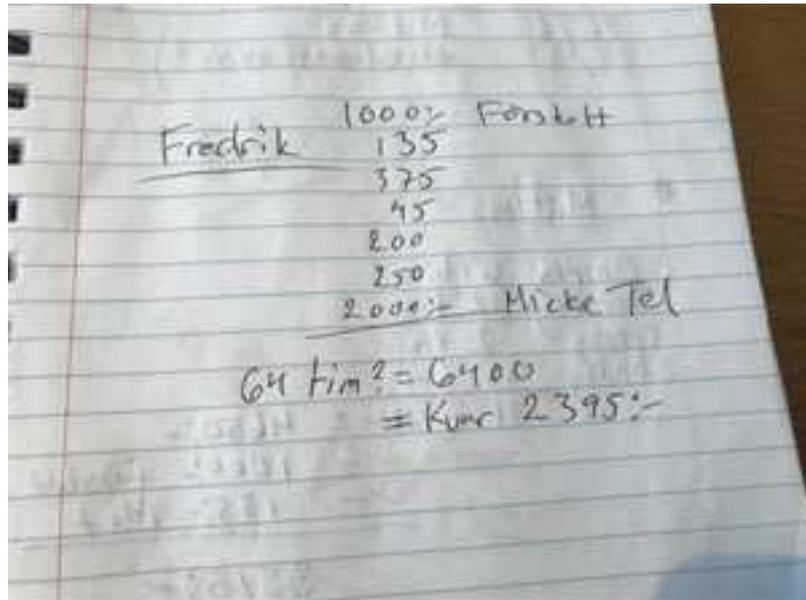 1000:- Förskott
Fredrik 135
375
45
200
250
2000:- Micke Tel
64 tim? = 6400
= Kvar 2395:-